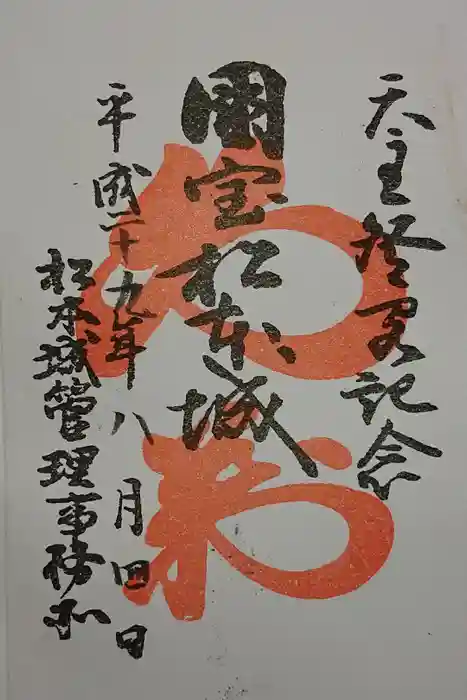 天主登閣記念
國宝松本城
平成二十九年八月四日
松本城管理事務所